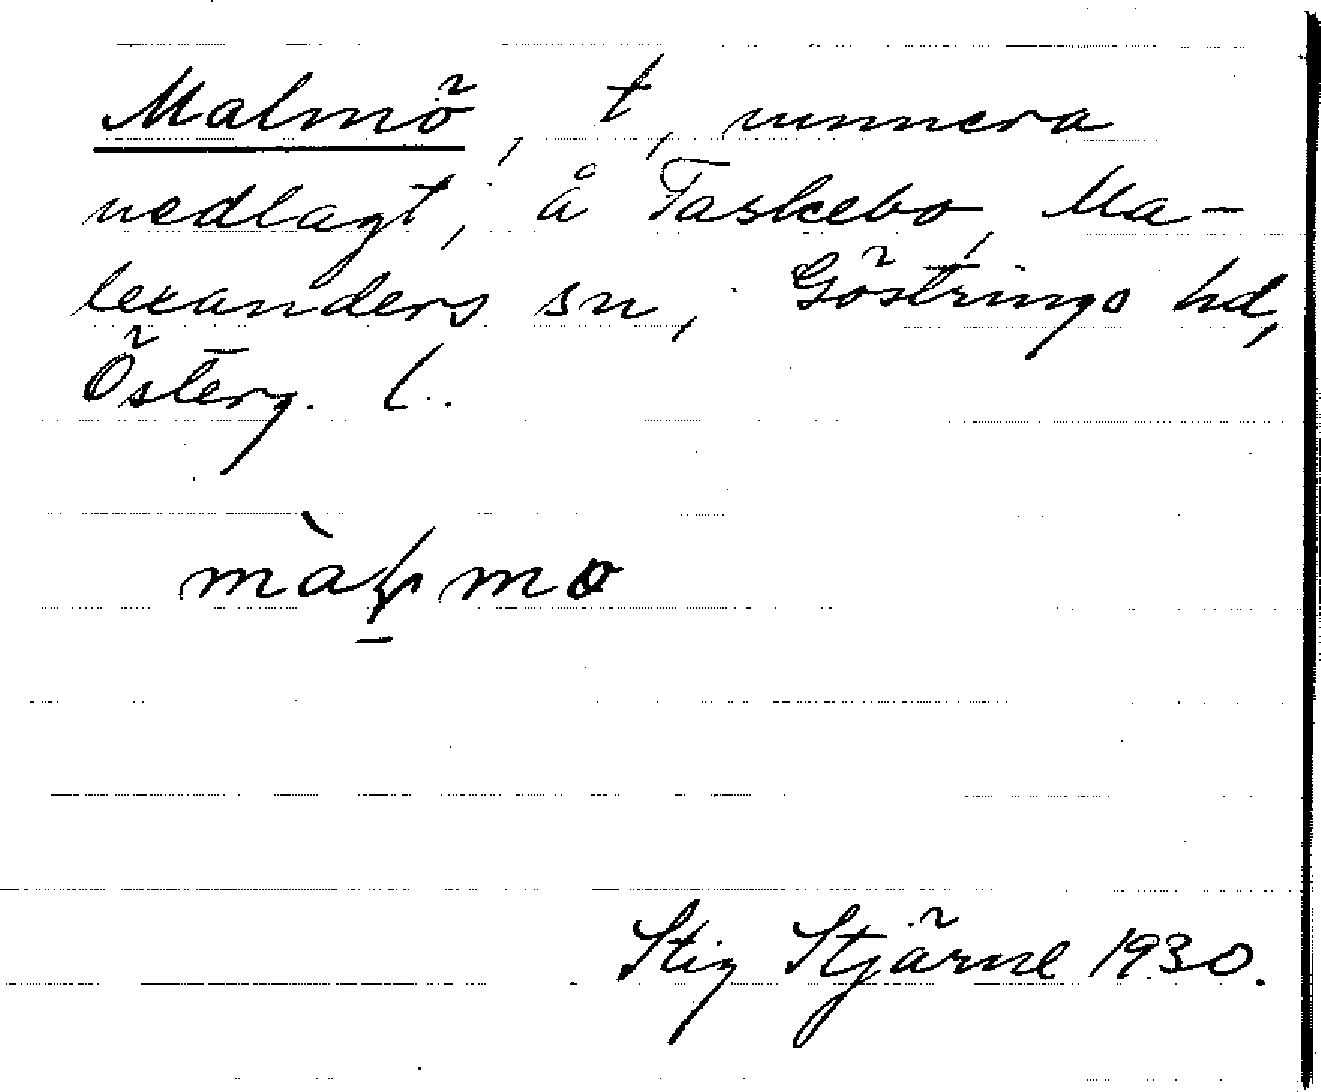 Malmö, t, numera
nedlagt, å Taskebo, Ma-
lexanders sn, Göstrings hd,
Österg. l.
Stig Stjärne 1930.